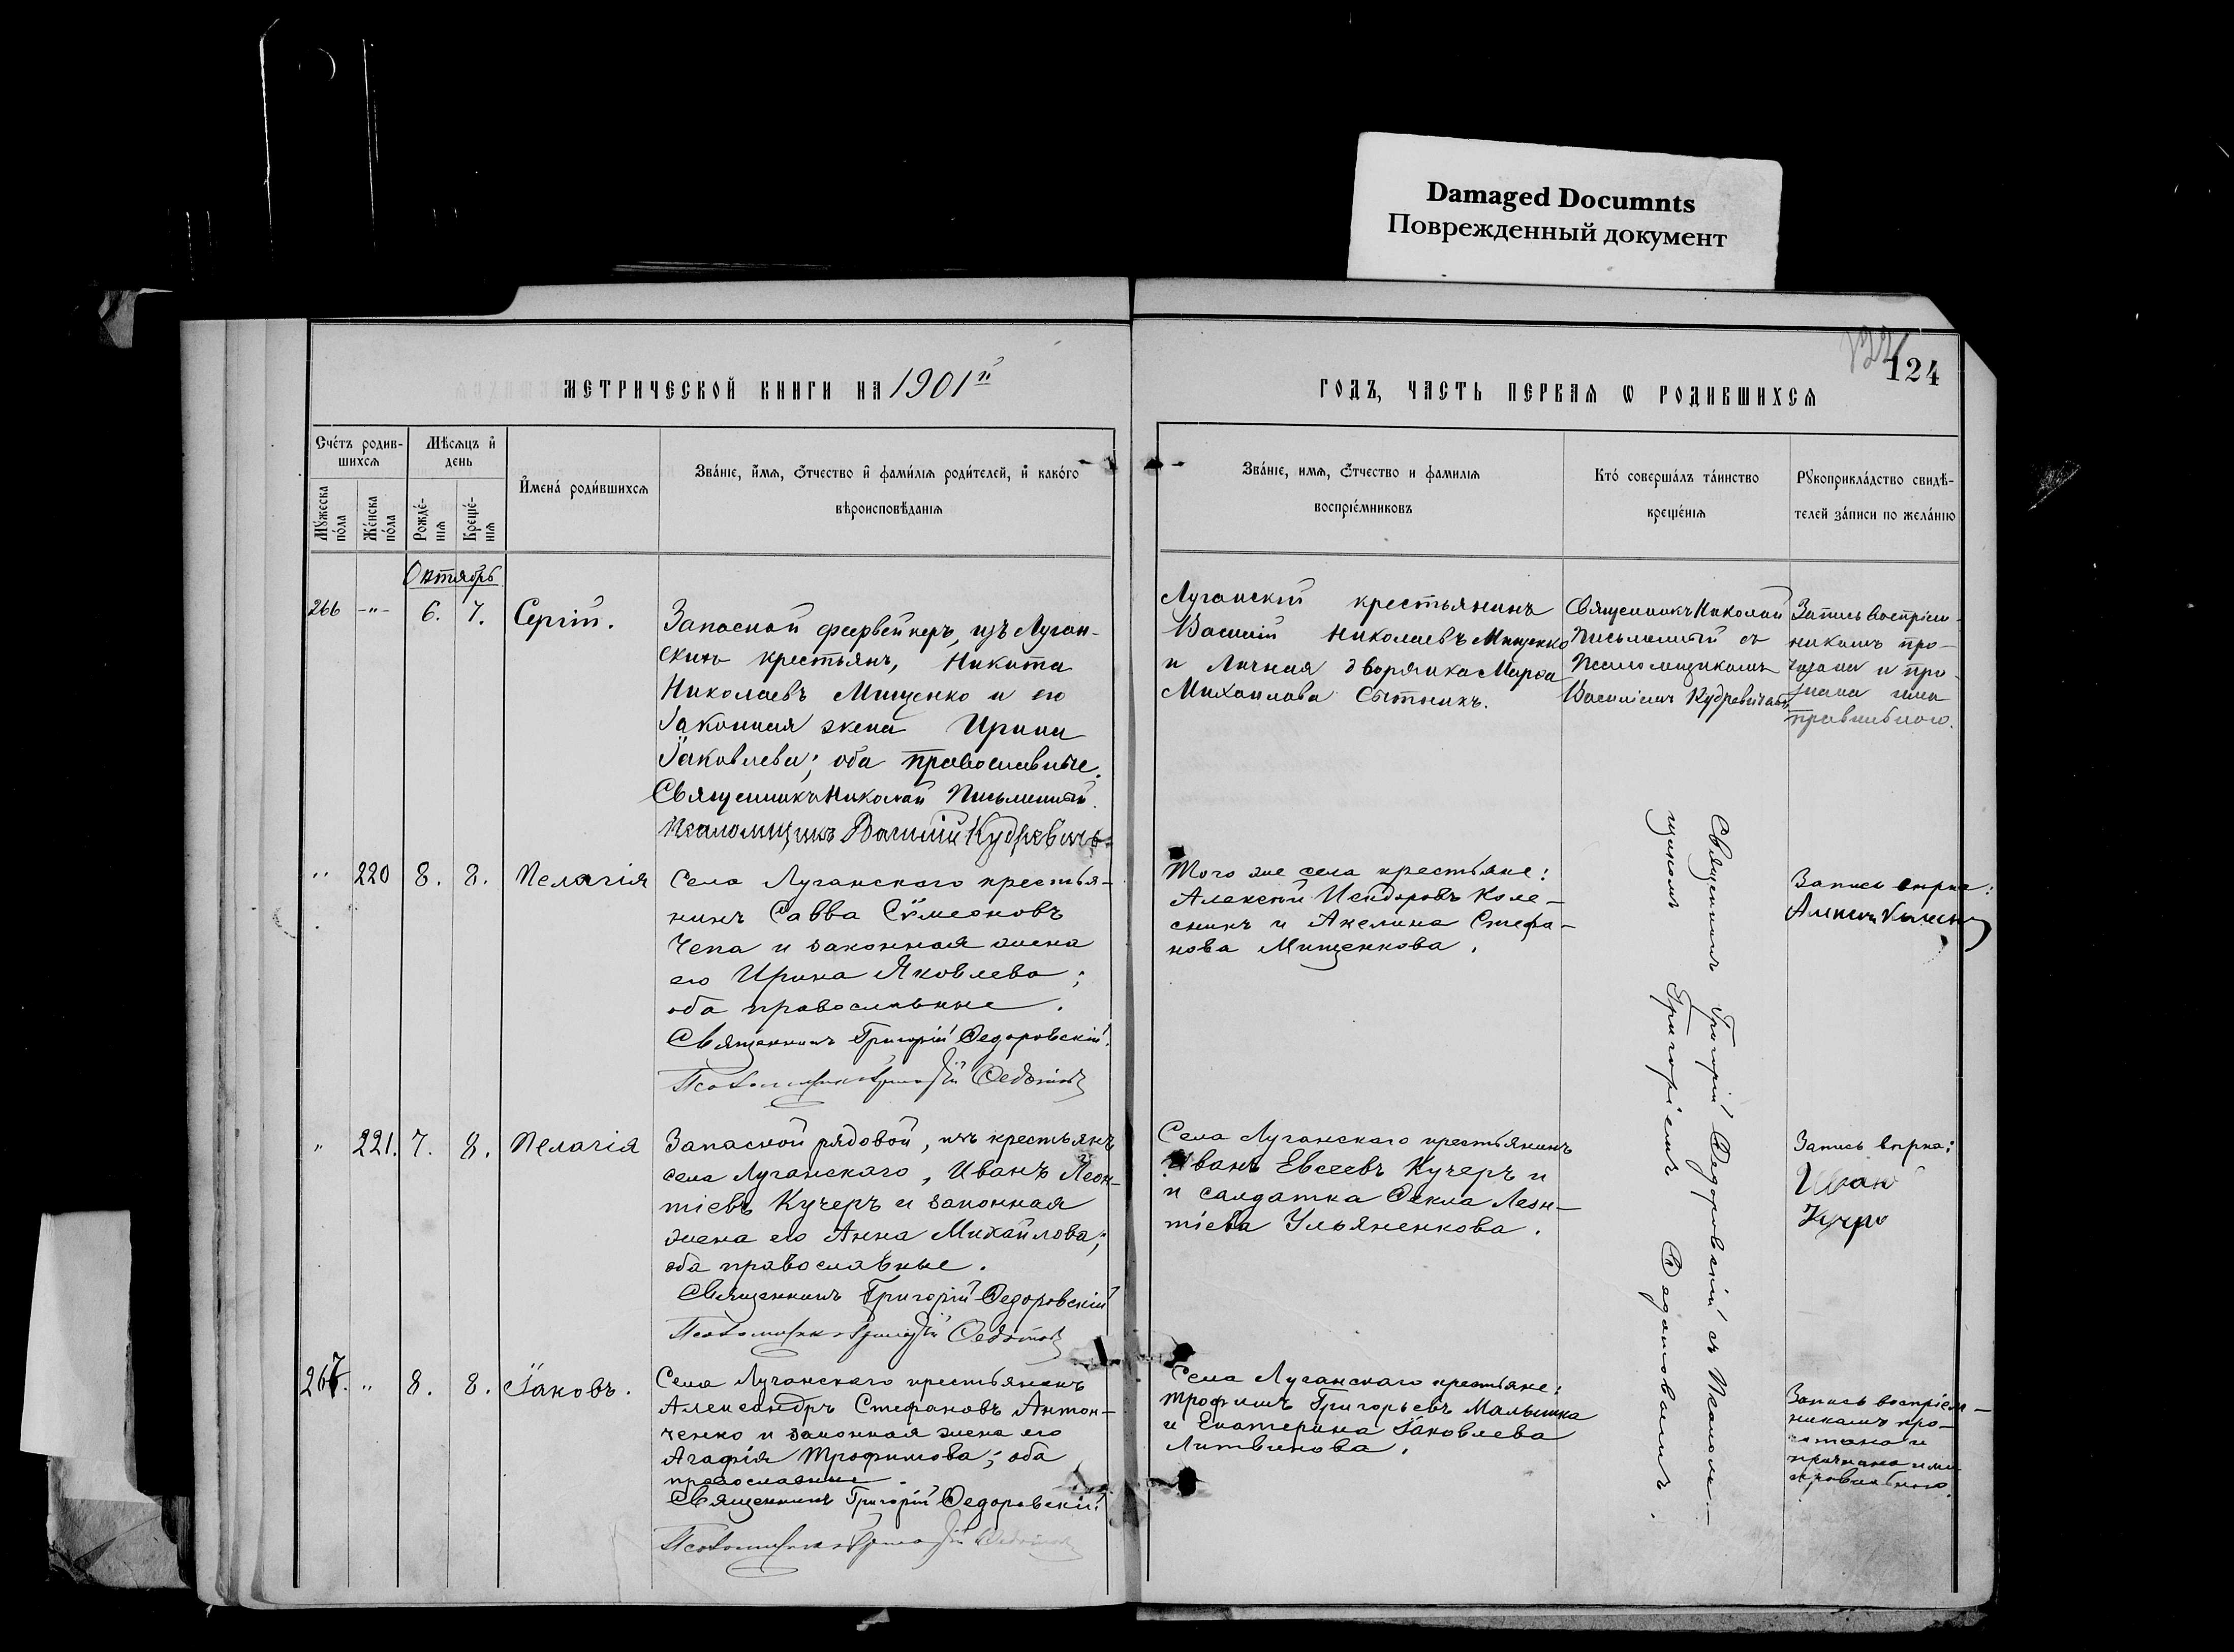 Damaged Documnts
Поврежденный документ
124
МЕТРИЧЕСКОЙ КНИГИ НА 1901й
ГОДЪ, ЧАСТЬ ПЕРВАѦ Ѡ РОДИВШИХСѦ
Сче́тъ родив-
шихсѧ
Мѣ́сѧцъ и҆
день
Му́жеска
по́ла
Же́нска
по́ла
Рожде́-
нїѧ
Креще́-
нїѧ
И҆мена̀ роди́вшихсѧ
Зва́нїе, и҆́мѧ, ѻ҆́тчество и҆ фами́лїѧ роди́телей, и҆ како́гѡ
вѣроисповѣ́данїѧ
Зва́нїе, имѧ, ѻ҆́тчество и фамилїѧ
воспрїе́мниковъ
Кто̀ соверша́лъ та́инство
креще́нїѧ
Рꙋкоприкла́дство свидѣ́-
телей за́писи по жела́нїю
Октябрь
266 -"- 6. 7. Сергій.
Запасной феервейнеръ, изъ Луган-
скихъ крестьянъ, Никита
Николаевъ Мищенко и его
законная жена Ирина
Іаковлева; оба православные.
Священникъ Николай Письменный.
Псаломщикъ Василій Кудревичъ.
Луганскій крестьянинъ
Василій Николаевъ Мищенко
и личная дворянка Марѳа
Михаилова Сытникъ.
Священникъ Николай
Письменный съ
Псаломщикомъ
Василіемъ Кудревичемъ
Запись воспріем-
никамъ про-
читана и при-
знана ими
правильною.
" 220 8. 8. Пелагія
Села Луганского крестья-
нинъ Савва Сѵмеоновъ
Чепа и законная жена
его Ирина Яковлева;
оба православные.
Священникъ Григорій Ѳедоровскій.
Псаломщикъ Григорій Ѳедотовъ
Того же села крестьяне:
Алексѣй Исидоровъ Коле-
сникъ и Акелина Стефа-
нова Мищенкова.
Запись вѣрна:
" 221. 7. 8. Пелагія
Запасной рядовой, изъ крестьянъ
села Луганского, Иванъ Леон-
тіевъ Кучеръ и законная
жена его Анна Михайлова;
оба православные.
Священникъ Григорій Ѳедоровскій
Псаломщикъ Григорій Ѳедотовъ
Села Луганского крестьянинъ
Иванъ Евсеевъ Кучеръ и
и салдатка Ѳекла Леон-
тіева Ульяненкова.
Запись вѣрна:
Иван
Кучер
267. " 8. 8. Іаковъ.
Села Луганского крестьянинъ
Александръ Стефановъ Антон-
ченко и законная жена его
Агафія Трофимова; оба
православные.
Священникъ Григорій Ѳедоровскій
Псаломщикъ Григорій Ѳедотовъ
Села Луганского крестьяне:
Трофимъ Григорьевъ Малышка
и Екатерина Іаковлева
Литвинова.
Священникъ Григорій Ѳедоровскій съ Псалом-
щикомъ Григоріемъ Ѳедотовымъ.
Запись воспріем-
никамъ про-
читана и
признана ими
правильною.